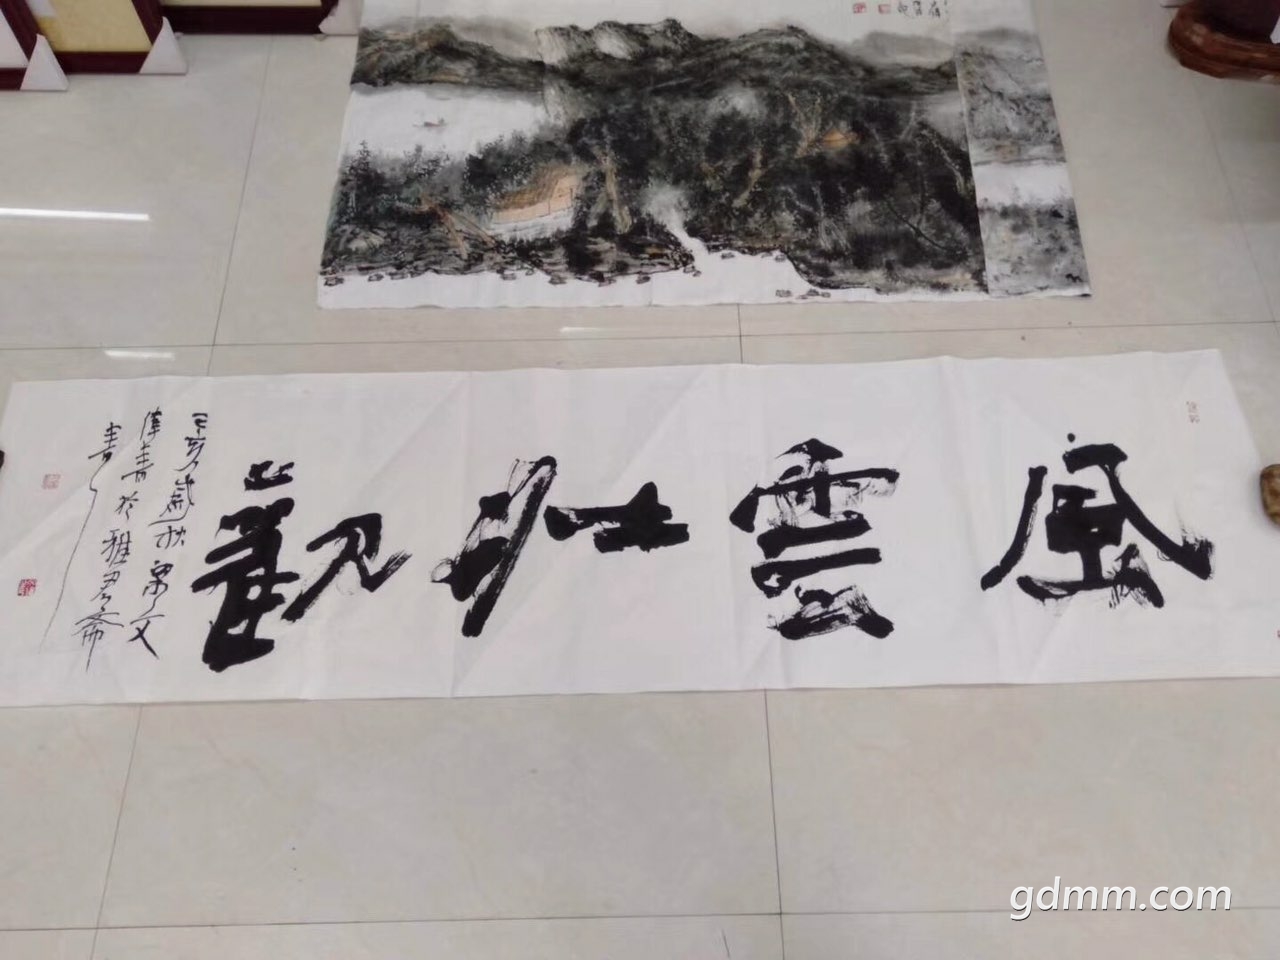 風雲壯觀
亥歲秋梁文
偉書於雅君齋
書
gdmm.com